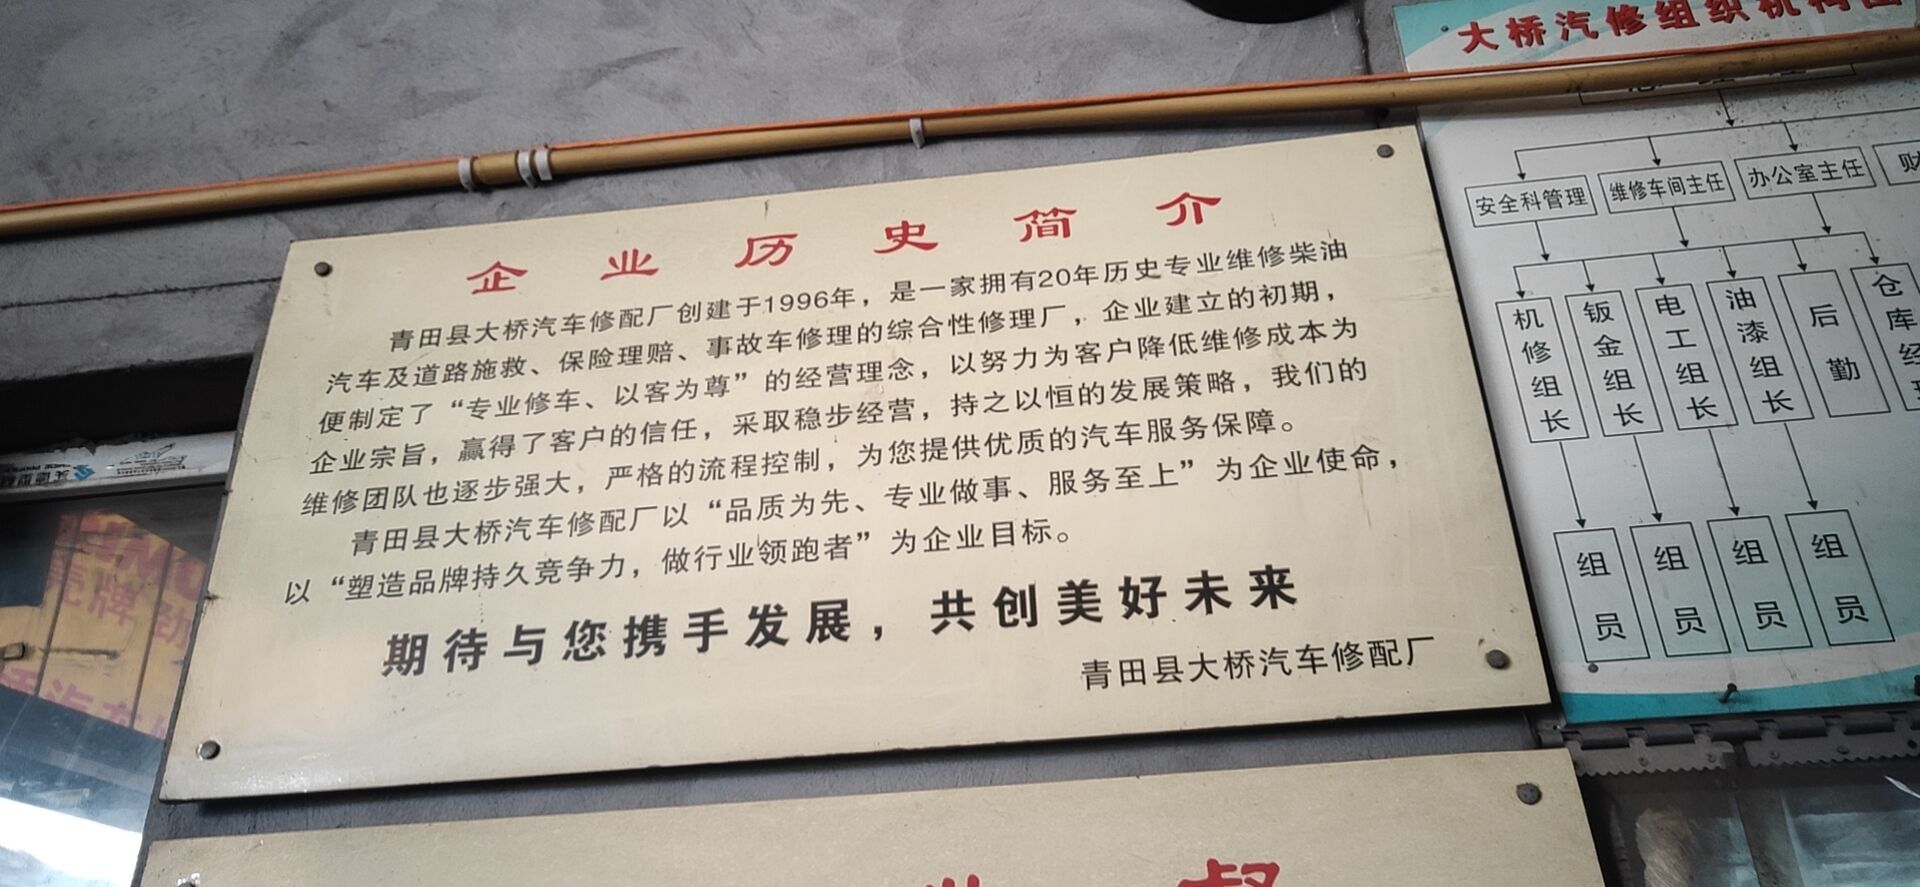 企业历史简介
青田县大桥汽车修配厂创建于1996年，是一家拥有20年历史专业维修柴油
汽车及道路施救、保险理赔、事故车修理的综合性修理厂，企业建立的初期，
便制定了“专业修车、以客为尊”的经营理念，以努力为客户降低维修成本为
企业宗旨，赢得了客户的信任，采取稳步经营，持之以恒的发展策略，我们的
维修团队也逐步强大，严格的流程控制，为您提供优质的汽车服务保障。
青田县大桥汽车修配厂以“品质为先、专业做事、服务至上”为企业使命，
以“塑造品牌持久竞争力，做行业领跑者”为企业目标。
期待与您携手发展，共创美好未来
青田县大桥汽车修配厂
大桥汽修组织机构
安全科管理
维修车间主任
办公室主任
财
机修组长
钣金组长
电工组长
油漆组长
后勤
仓库经
组员
组员
组员
组员
壳牌